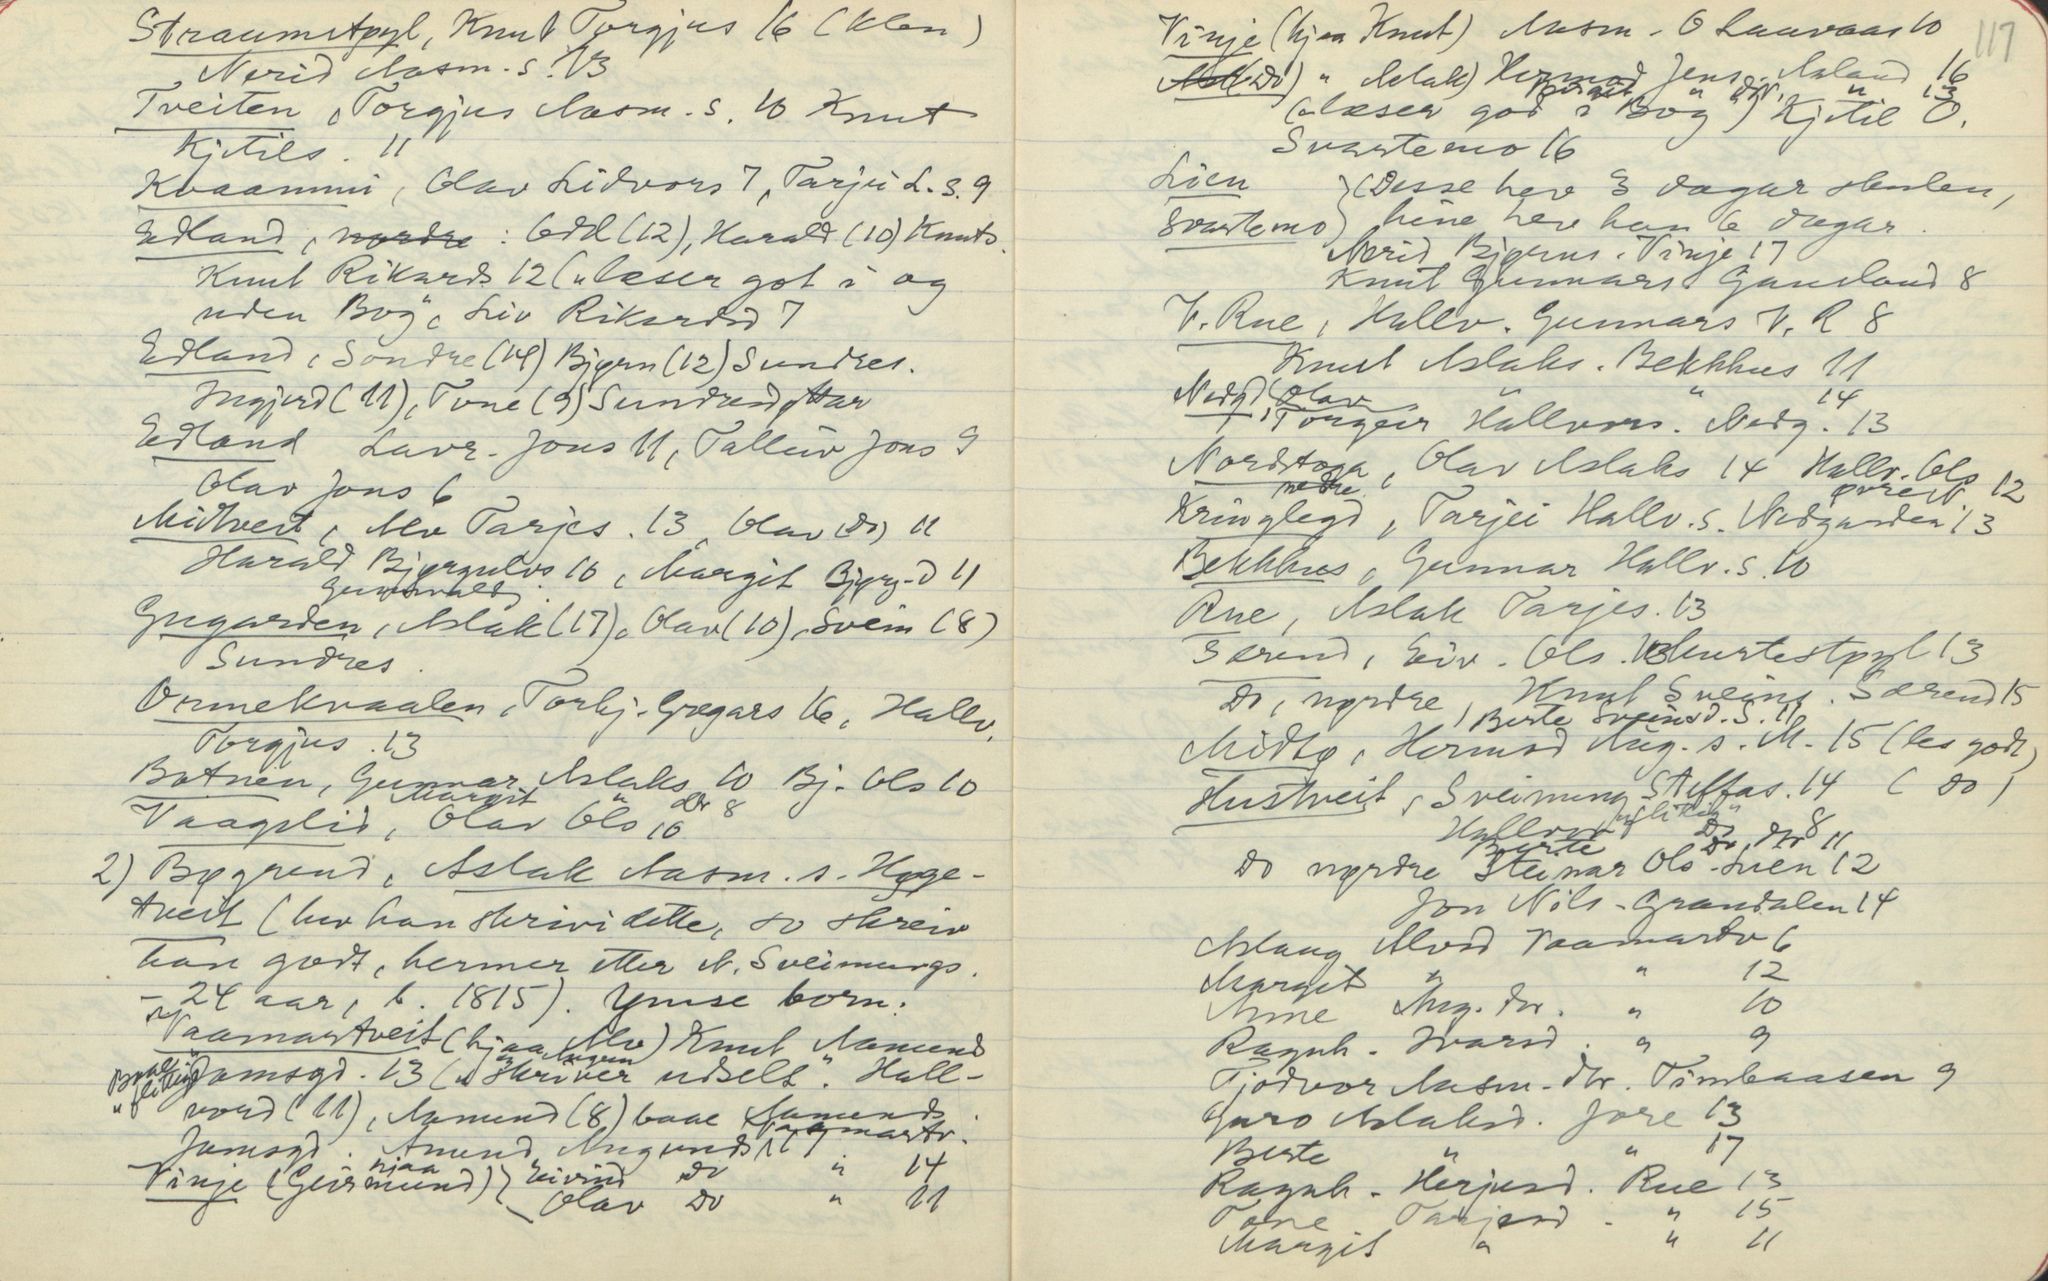 Straumstøyl, Knut Torgjus 16 (klen)
Nerid Aasm. s. 13
Tveiten, Torgjus Aasm. s. 10 Knut
Kjetils. 11
Kvaammi, Olav Lidvors 7, Tarjei L. s. 9
Edland, nordre: Odd (12), Harald (10) Knuts.
Knut Rikards 12 („læser got i og
uden Bog", Liv Rikardsd 7
Edland, Sondre (14) Bjørn (12) Sundres.
Ingjerd (11), Tone (9) Sundresdøttar
Edland Lavr. Jons 11, Talleiv Jons 9
Olav Jons 6
Midtveit, Alv Tarjes. 13, Olav (do) 11
Harald Bjørgulvs 10, Margit Bjørg.d 11
Gunnvald
Gugarden, Aslak (17), Olav (10), Svein (8)
Sundres.
Ormekvaalen, Torbj. Gregars 16, Hallv.
Torgjus. 13
Botnen, Gunnar Aslaks 10 Bj. Ols 10
Margit " dtr 8
Vaagslid, Olav Ols 10
2) Bøgrend, Aslak Aasm. s. Høge-
tveit (hev han skrivi dette, so skreiv
han godt, hermer etter N. Sveinungs.
- 24 aar, f. 1815). Ymse born:
Vaamartveit (hjaa Alv) Knut Aamund
Jamsgd. 13 („skriver udselt". Hall-
vord (11), Aamund (8) baae Aamunds
Jamsgd. Amund Augunds Vaamartv. 17
Vinje (hjaa Geirmund) Eivind do " 14
Olav do " 11
117
Vinje (hjaa Knut) Aasm. O Laavaas 10
(do) " Aslak) Hermod Jens. Aaland 16
Birgit " dtr. " 13
(„læser god i Bog") Kjetil O.
Svartemo 16
Lien
Svartemo } (Desse hev 3 dagar skulen,
hine hev han 6 dagar.
Nerid Bjørns. Vinje 17
Knut Gunnars. Gausland 8
V. Rue, Hallv. Gunnars V. R 8
Knut Aslaks. Bekkhus 11
Nedgd, Olav " " 14
Torgeir Hallvors. Nedg. 13
Nordstoga, Olav Aslaks 14 Hallv. Ols
nedre øvreit 12
Kringlegd, Tarjei Hallv. s. Nedgarden 13
Bekkhus, Gunnar Hallv. s. 10
Rue, Aslak Tarjes. 13
Særend, Eiv. Ols. Kurtestøyl 13
Do, nørdre, Knut Sveins. Særend 15
Berte Sveinsd. S. 11
Midtø, Hermod Aug. s. M. 15 (les godt)
Hustveit, Sveinung Steffas. 14 (do)
Hallvor „flitig" do 8
Birte do, dtr 11
Do nørdre Steinar Ols. Lien 12
Jon Nils. Grandalen 14
Aslaug Alvsd Vaamartv 6
Margit " " 12
Anne Aug. dtr. " 10
Ragnh. Ivarsd. " 9
Tjodvor Aasm. dtr. Timbaasen 9
Guro Aslaksd. Jore 13
Berte " " 17
Ragnh. Herjusd. Rue 13
Tone Tarjesd. " 15
Margit " " 11